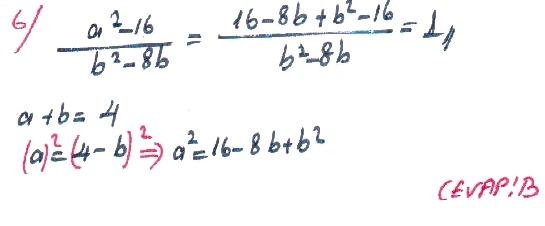 6/ a²-16 / b²-8b = 16-8b+b²-16 / b²-8b = 1,,
a+b=4
(a)²=(4-b)² ⇒ a²=16-8b+b²
CEVAP:B